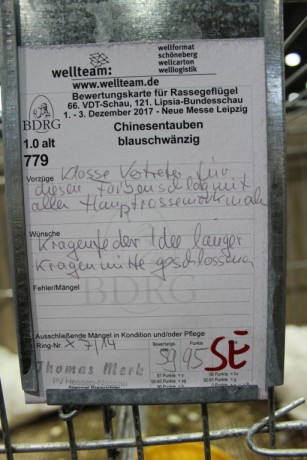 wellteam:
wellformat
schöneberg
wellcarton
welllogistik
www.wellteam.de
Bewertungskarte für Rassegeflügel
66. VDT-Schau, 121. Lipsia-Bundesschau
1. - 3. Dezember 2017 - Neue Messe Leipzig
BDRG
Chinesentauben
blauschwänzig
1.0 alt
779
Vorzüge Klasse Vertreter für
diesen Farbenschlag mit
allen Hauptrassemerkmalen
Wünsche
Kragenfeder Idee länger
Kragenmitte geschlossener
Fehler/Mängel
BDRG
Ausschließende Mängel in Kondition und/oder Pflege
Ring-Nr. X 7/14
Bewertungs- Punkte
95 SE
Thomas Merk
PV Hessen-Nassau